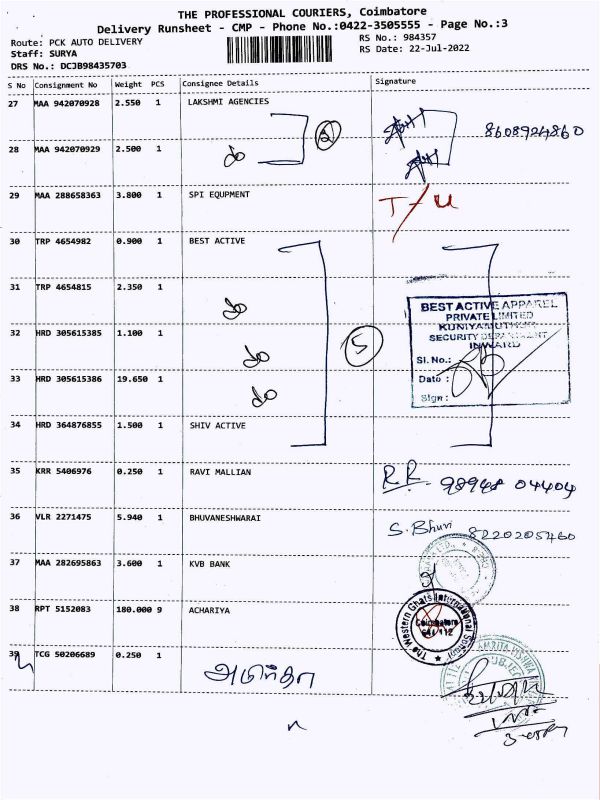 THE PROFESSIONAL COURIERS, Coimbatore
Delivery Runsheet - CMP - Phone No.:0422-3505555 - Page No.:3
Route: PCK AUTO DELIVERY
Staff: SURYA
DRS No.: DCJB98435703
RS No.: 984357
RS Date: 22-Jul-2022
S No Consignment No Weight PCS Consignee Details Signature
27 MAA 942070928 2.550 1 LAKSHMI AGENCIES
2 8608924860
28 MAA 942070929 2.500 1 do
29 MAA 288658363 3.800 1 SPI EQUPMENT T/U
30 TRP 4654982 0.900 1 BEST ACTIVE
31 TRP 4654815 2.350 1 do
32 HRD 305615385 1.100 1 do
5
33 HRD 305615386 19.650 1 do
BEST ACTIVE APPAREL
PRIVATE LIMITED
KUNIYAMUTHUR
SECURITY DEPARTMENT
INWARD
Sl. No.:
Date :
Sign :
34 HRD 364876855 1.500 1 SHIV ACTIVE
35 KRR 5406976 0.250 1 RAVI MALLIAN R.R. 98948 04404
36 VLR 2271475 5.940 1 BHUVANESHWARAI S. Bhuri 8220205460
37 MAA 282695863 3.600 1 KVB BANK
38 RPT 5152083 180.000 9 ACHARIYA
The Western Ghats International School
Coimbatore
641 112
39 TCG 50206689 0.250 1
அமிர்தா